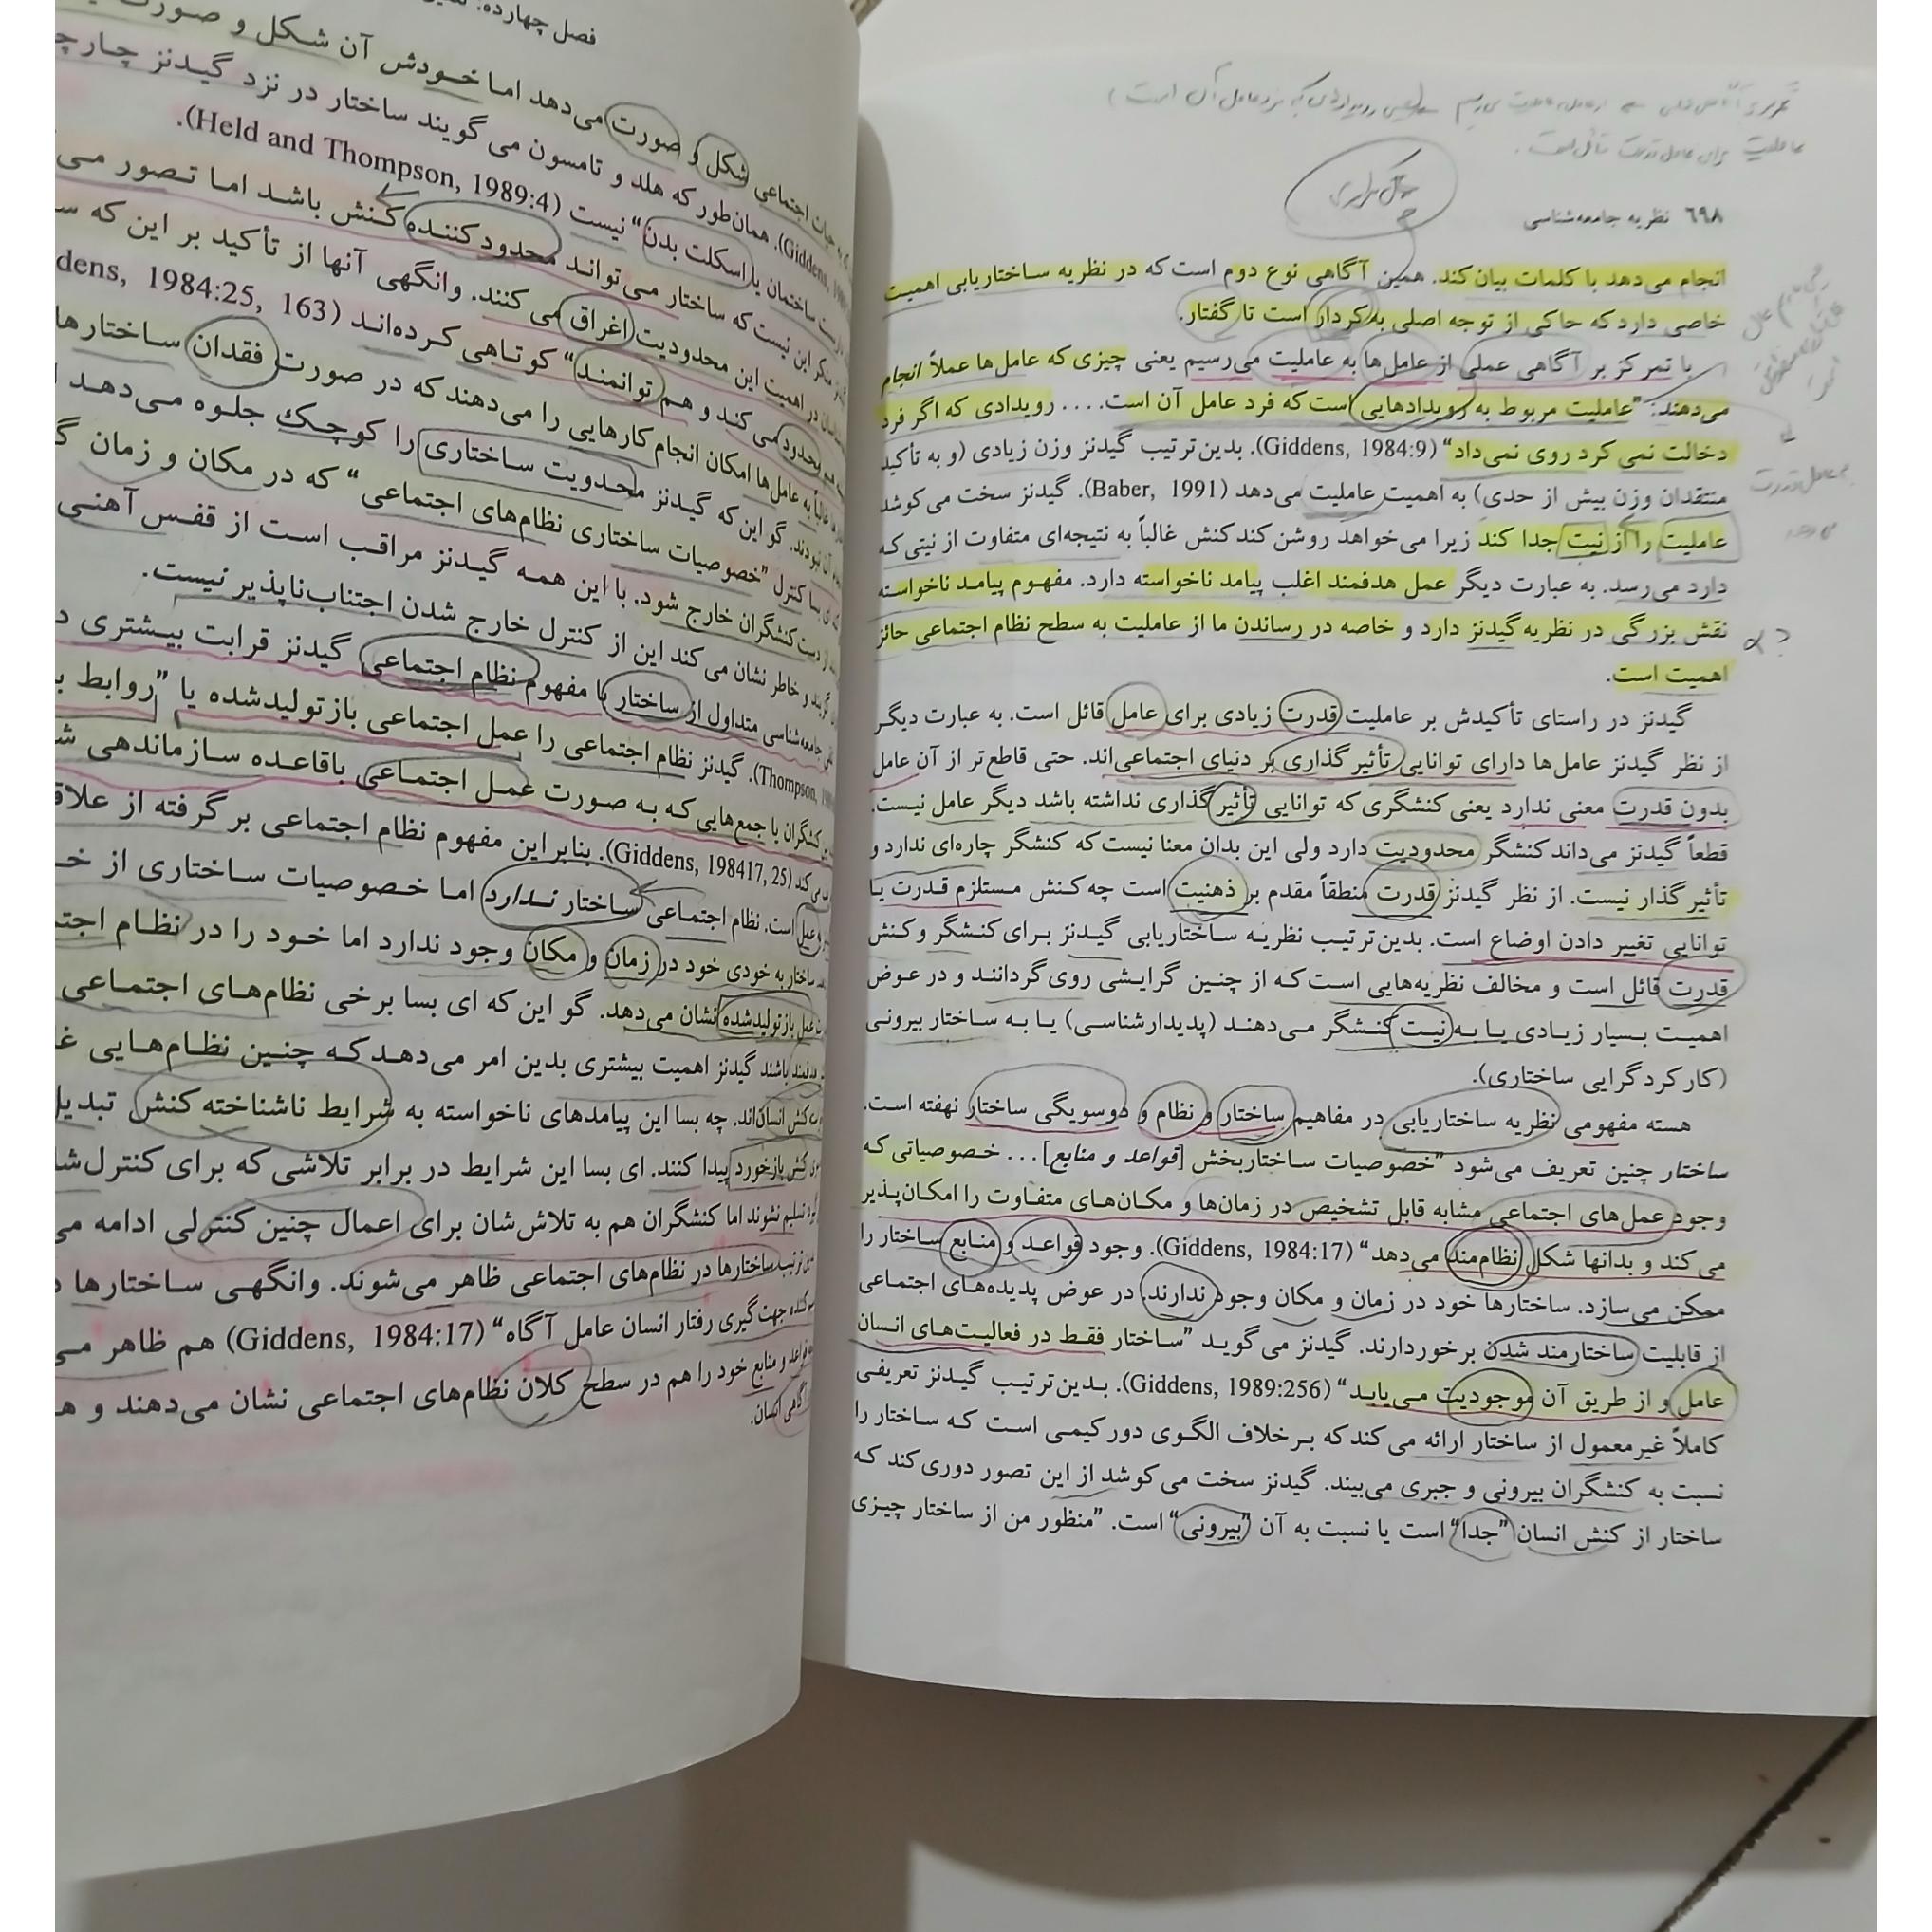 ۶۹۸ نظریه جامعه‌شناسی
انجام می‌دهد با کلمات بیان کند. همین آگاهی نوع دوم است که در نظریه ساختاریابی اهمیت
خاصی دارد که حاکی از توجه اصلی به کردار است تا گفتار.
با تمرکز بر آگاهی عملی از عامل‌ها به عاملیت می‌رسیم یعنی چیزی که عامل‌ها عملاً انجام
می‌دهند: "عاملیت مربوط به رویدادهایی است که فرد عامل آن است.... رویدادی که اگر فرد
دخالت نمی‌کرد روی نمی‌داد" (Giddens, 1984:9). بدین‌ترتیب گیدنز وزن زیادی (و به تأکید
منتقدان وزن بیش از حدی) به اهمیت عاملیت می‌دهد (Baber, 1991). گیدنز سخت می‌کوشد
عاملیت را از نیت جدا کند زیرا می‌خواهد روشن کند کنش غالباً به نتیجه‌ای متفاوت از نیتی که
دارد می‌رسد. به عبارت دیگر عمل هدفمند اغلب پیامد ناخواسته دارد. مفهوم پیامد ناخواسته
نقش بزرگی در نظریه گیدنز دارد و خاصه در رساندن ما از عاملیت به سطح نظام اجتماعی حائز
اهمیت است.
گیدنز در راستای تأکیدش بر عاملیت قدرت زیادی برای عامل قائل است. به عبارت دیگر
از نظر گیدنز عامل‌ها دارای توانایی تأثیرگذاری بر دنیای اجتماعی‌اند. حتی قاطع‌تر از آن عامل
بدون قدرت معنی ندارد یعنی کنشگری که توانایی تأثیرگذاری نداشته باشد دیگر عامل نیست.
قطعاً گیدنز می‌داند کنشگر محدودیت دارد ولی این بدان معنا نیست که کنشگر چاره‌ای ندارد و
تأثیرگذار نیست. از نظر گیدنز قدرت منطقاً مقدم بر ذهنیت است چه کنش مستلزم قدرت یا
توانایی تغییر دادن اوضاع است. بدین‌ترتیب نظریه ساختاریابی گیدنز برای کنشگر و کنش
قدرت قائل است و مخالف نظریه‌هایی است که از چنین گرایشی روی گردانند و در عوض
اهمیت بسیار زیادی یا به نیت کنشگر می‌دهند (پدیدارشناسی) یا به ساختار بیرونی
(کارکردگرایی ساختاری).
هسته مفهومی نظریه ساختاریابی در مفاهیم ساختار و نظام و دوسویگی ساختار نهفته است.
ساختار چنین تعریف می‌شود "خصوصیات ساختاربخش [قواعد و منابع]... خصوصیاتی که
وجود عمل‌های اجتماعی مشابه قابل تشخیص در زمان‌ها و مکان‌های متفاوت را امکان‌پذیر
می‌کند و بدانها شکل نظام‌مند می‌دهد" (Giddens, 1984:17). وجود قواعد و منابع ساختار را
ممکن می‌سازد. ساختارها خود در زمان و مکان وجود ندارند. در عوض پدیده‌های اجتماعی
از قابلیت ساختارمند شدن برخوردارند. گیدنز می‌گوید "ساختار فقط در فعالیت‌های انسان
عامل و از طریق آن موجودیت می‌یابد" (Giddens, 1989:256). بدین‌ترتیب گیدنز تعریفی
کاملاً غیرمعمول از ساختار ارائه می‌کند که برخلاف الگوی دورکیمی است که ساختار را
نسبت به کنشگران بیرونی و جبری می‌بیند. گیدنز سخت می‌کوشد از این تصور دوری کند که
ساختار از کنش انسان "جدا" است یا نسبت به آن "بیرونی" است. "منظور من از ساختار چیزی
فصل چهارده:
حیات اجتماعی شکل و صورت می‌دهد اما خودش آن شکل و صورت
همان‌طور که هلد و تامسون می‌گویند ساختار در نزد گیدنز
ساختمان یا اسکلت بدن" نیست (Held and Thompson, 1989:4).
منکر این نیست که ساختار می‌تواند محدودکننده کنش باشد اما تصور
در اهمیت این محدودیت اغراق می‌کنند. وانگهی آنها از تأکید بر این که
محدود می‌کند و هم توانمند" کوتاهی کرده‌اند (1984:25, 163
غالباً به عامل‌ها امکان انجام کارهایی را می‌دهند که در صورت فقدان ساختارها
آن نبودند. گو این که گیدنز محدویت ساختاری را کوچک جلوه می‌دهد
کنترل "خصوصیات ساختاری نظام‌های اجتماعی" که در مکان و زمان
از دست کنشگران خارج شود. با این همه گیدنز مراقب است از قفس آهنی
و خاطر نشان می‌کند این از کنترل خارج شدن اجتناب‌ناپذیر نیست.
جامعه‌شناسی متداول از ساختار با مفهوم نظام اجتماعی گیدنز قرابت بیشتری
گیدنز نظام اجتماعی را عمل اجتماعی بازتولیدشده یا "روابط
کنشگران یا جمع‌هایی که به صورت عمل اجتماعی باقاعده سازماندهی
(Giddens, 198417, 25). بنابراین مفهوم نظام اجتماعی برگرفته از
است. نظام اجتماعی ساختار ندارد اما خصوصیات ساختاری از
ساختار به خودی خود در زمان و مکان وجود ندارد اما خود را در نظام
عمل بازتولیدشده نشان می‌دهد. گو این که ای بسا برخی نظام‌های اجتماعی
باشند گیدنز اهمیت بیشتری بدین امر می‌دهد که چنین نظام‌هایی
کنش انسان‌اند. چه بسا این پیامدهای ناخواسته به شرایط ناشناخته کنش تبدیل
بازخورد پیدا کنند. ای بسا این شرایط در برابر تلاشی که برای کنترل‌شان
تسلیم نشوند اما کنشگران هم به تلاش‌شان برای اعمال چنین کنترلی ادامه
ساختارها در نظام‌های اجتماعی ظاهر می‌شوند. وانگهی ساختارها
جهت‌گیری رفتار انسان عامل آگاه" (Giddens, 1984:17) هم ظاهر
و منابع خود را هم در سطح کلان نظام‌های اجتماعی نشان می‌دهند و
آگاهی انسان.